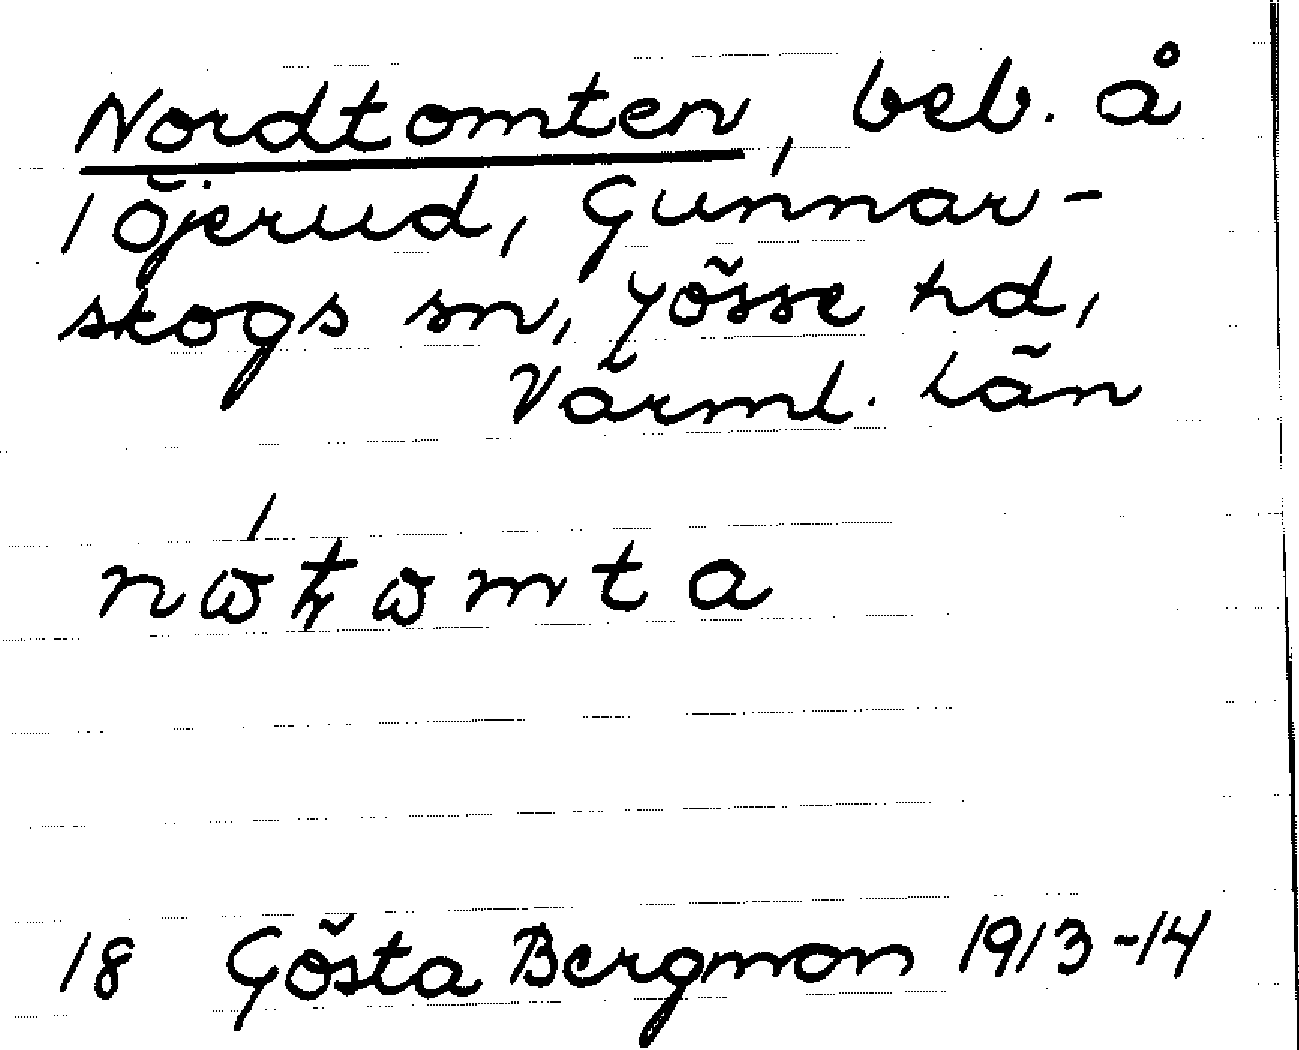 Nordtomten, beb. å
1 Öjerud, Gunnar-
skogs sn, Jösse hd,
Värml. län
nωt̠ωmta
18 Gösta Bergman 1913-14